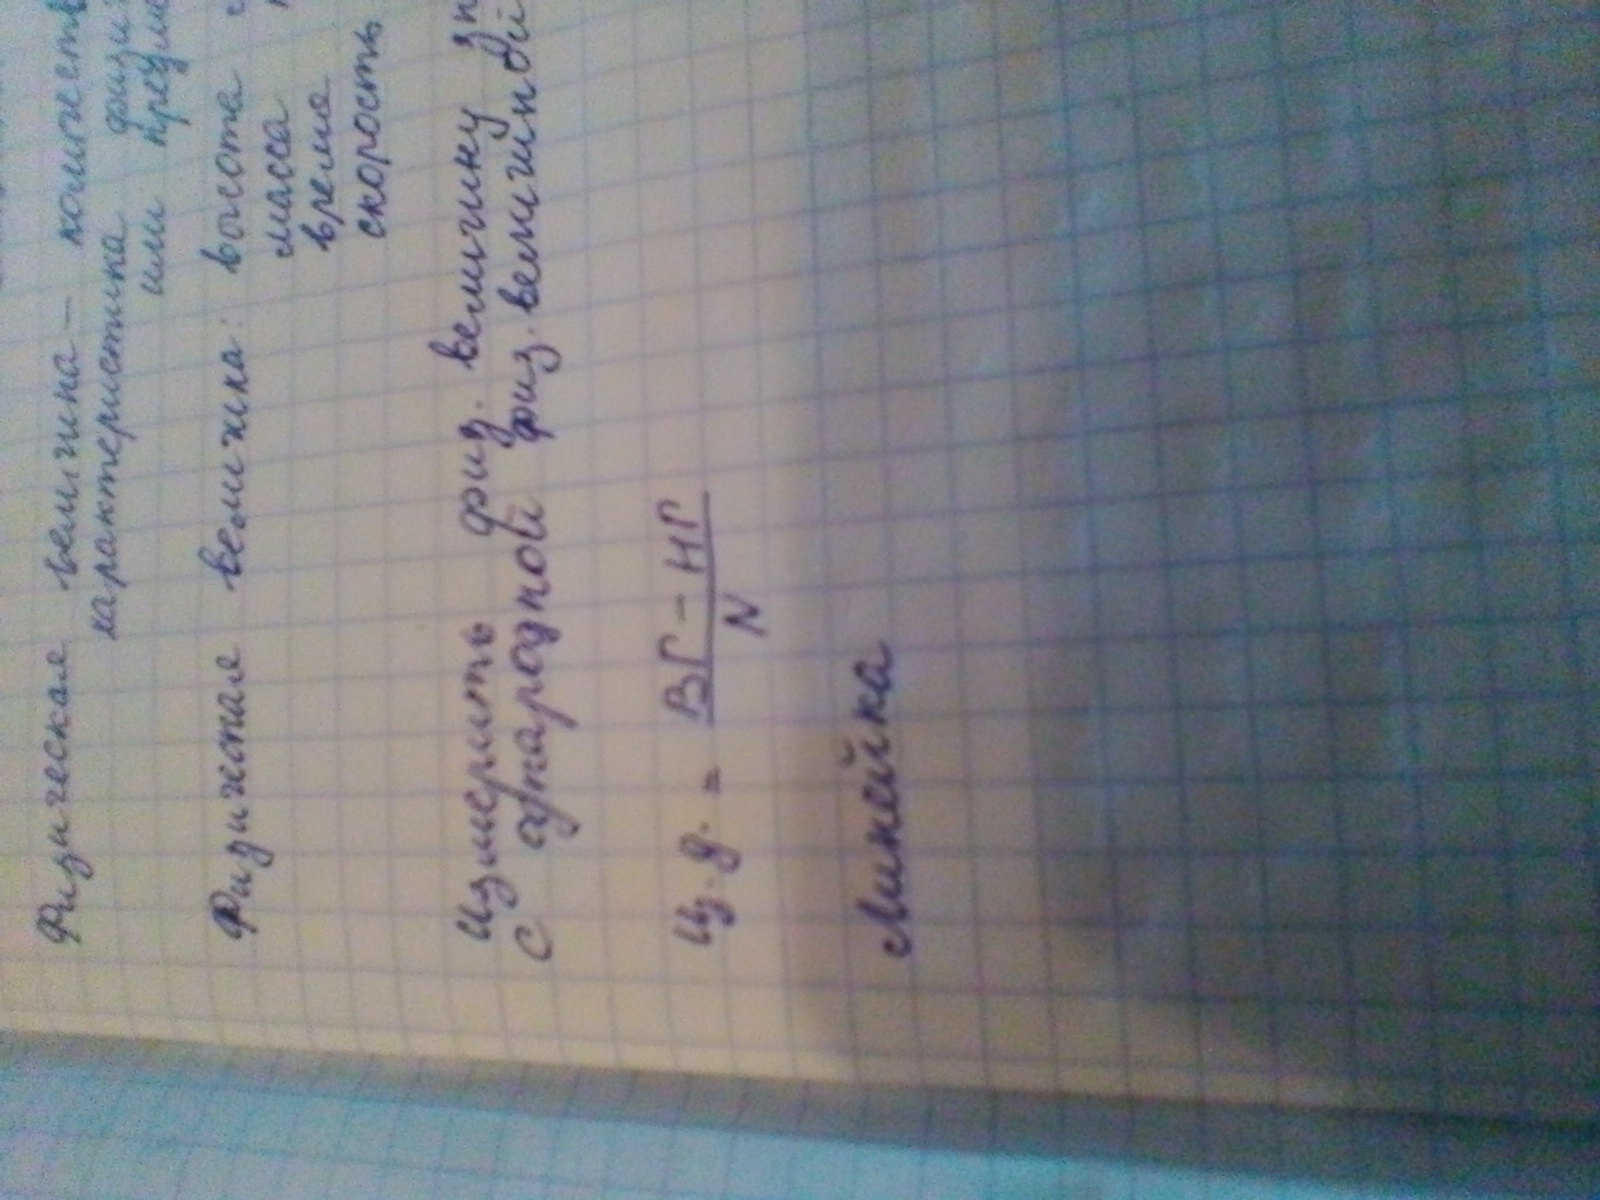 Физическая величина –
характеристика
или
Физичекая величина: высота
масса
время
скорость
Измерить физ. величину
с однородной физ. величиной
Ц. д. = ВГ – НГ
N
Линейка